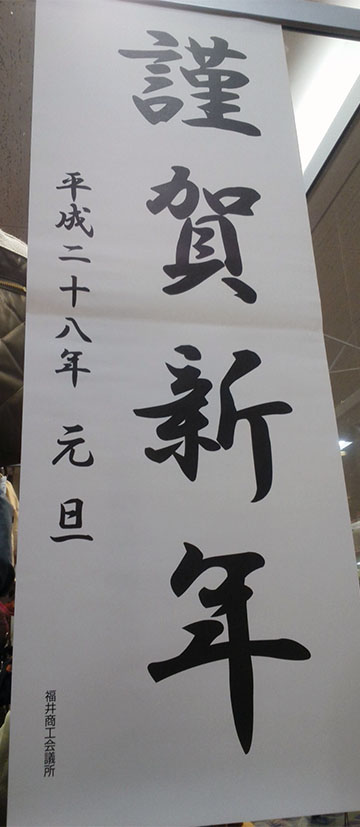 謹賀新年
平成二十八年 元旦
福井商工会議所